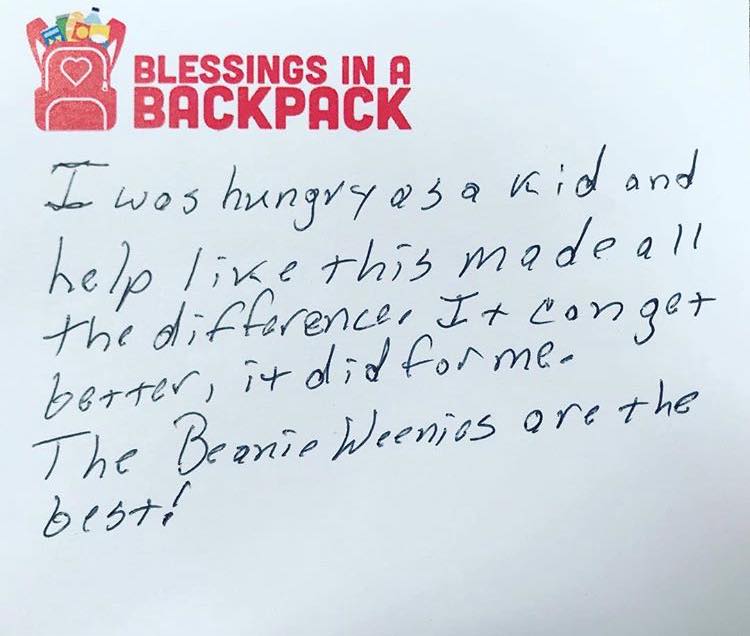 BLESSINGS IN A
BACKPACK
I was hungry as a kid and
help like this made all
the difference. It can get
better, it did for me.
The Beanie Weenies are the
best!